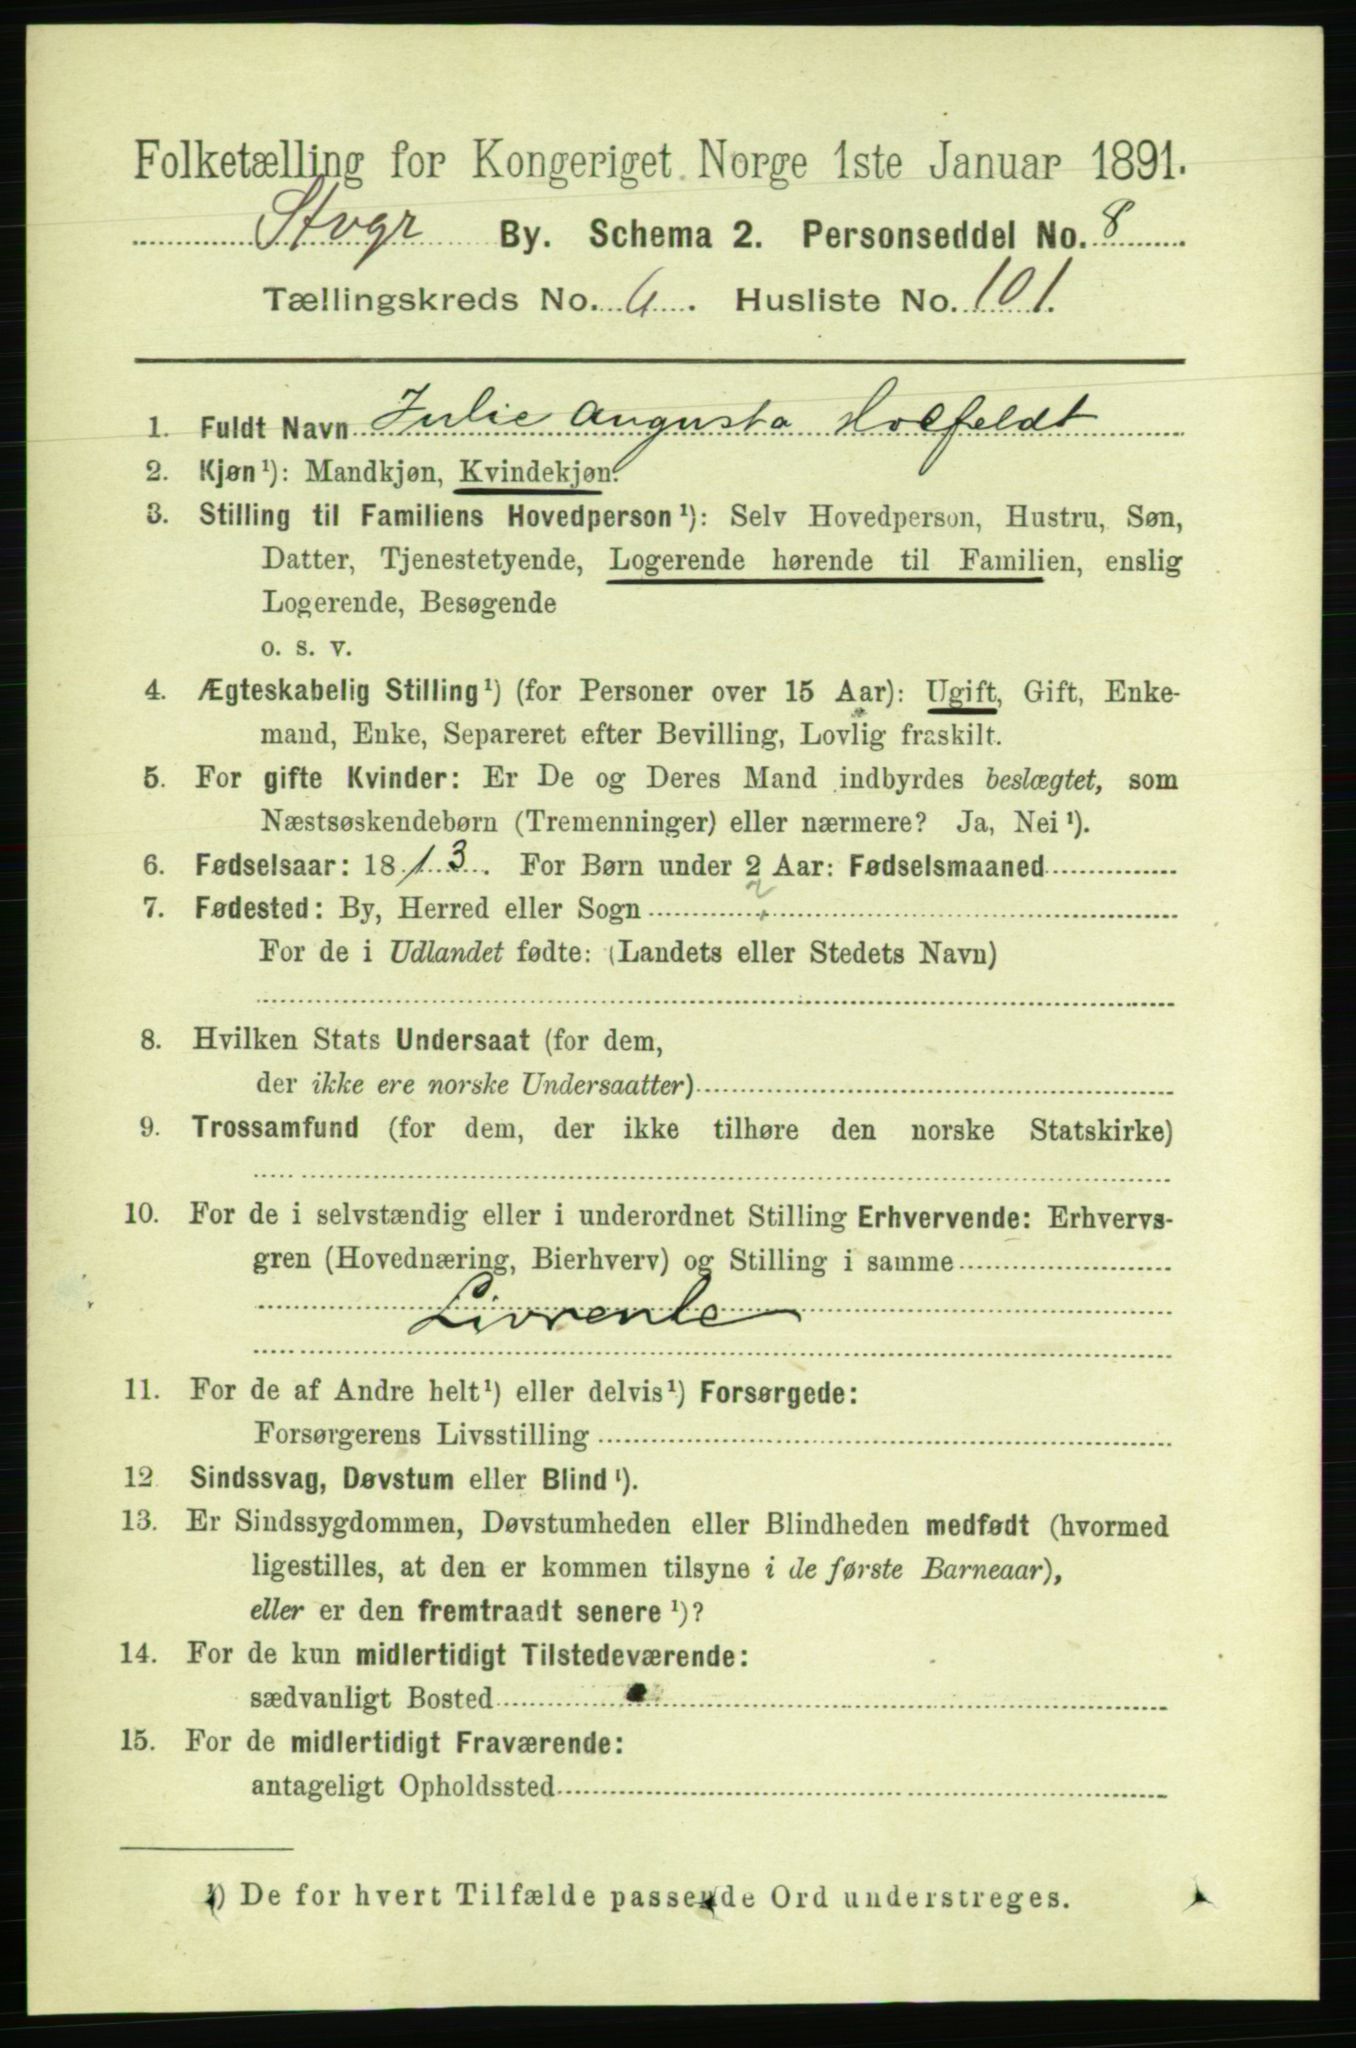 Folketælling for Kongeriget Norge 1ste Januar 1891.
Stvgr By. Schema 2. Personseddel No. 8
Tællingskreds No. 6. Husliste No. 101.
1. Fuldt Navn Julie Augusta Holfeldt
2. Kjøn¹): Mandkjøn, Kvindekjøn.
3. Stilling til Familiens Hovedperson¹): Selv Hovedperson, Hustru, Søn,
Datter, Tjenestetyende, Logerende hørende til Familien, enslig
Logerende, Besøgende
o. s. v.
4. Ægteskabelig Stilling¹) (for Personer over 15 Aar): Ugift, Gift, Enke-
mand, Enke, Separeret efter Bevilling, Lovlig fraskilt.
5. For gifte Kvinder: Er De og Deres Mand indbyrdes beslægtet, som
Næstsøskendebørn (Tremenninger) eller nærmere? Ja, Nei¹).
6. Fødselsaar: 1813. For Børn under 2 Aar: Fødselsmaaned
7. Fødested: By, Herred eller Sogn ?
For de i Udlandet fødte: (Landets eller Stedets Navn)
8. Hvilken Stats Undersaat (for dem,
der ikke ere norske Undersaatter)
9. Trossamfund (for dem, der ikke tilhøre den norske Statskirke)
10. For de i selvstændig eller i underordnet Stilling Erhvervende: Erhvervs-
gren (Hovednæring, Bierhverv) og Stilling i samme
Livrente
11. For de af Andre helt¹) eller delvis¹) Forsørgede:
Forsørgerens Livsstilling
12 Sindssvag, Døvstum eller Blind¹).
13. Er Sindssygdommen, Døvstumheden eller Blindheden medfødt (hvormed
ligestilles, at den er kommen tilsyne i de første Barneaar),
eller er den fremtraadt senere¹)?
14. For de kun midlertidigt Tilstedeværende:
sædvanligt Bosted
15. For de midlertidigt Fraværende:
antageligt Opholdssted
¹) De for hvert Tilfælde passende Ord understreges.